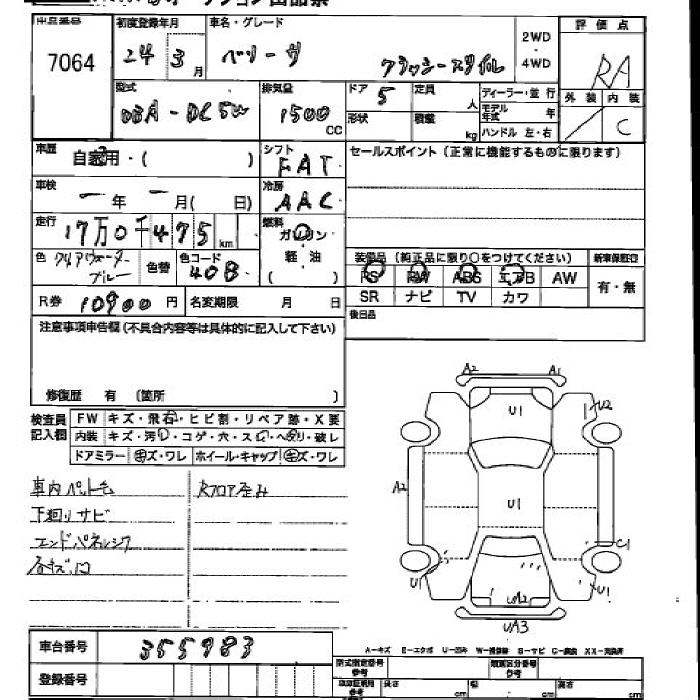 出品番号 初度登録年月 車名・グレード 2WD・4WD 評価点
7064 24 3月 ベリーサ クラッシースタイル RA
型式 排気量 ドア 5 定員 人 ディーラー・並行 外装 内装
DBA-DC5W 1500cc 形状 積載 kg モデル年式 年 ハンドル 左・右 C
車歴 自家用・( ) シフト FAT セールスポイント(正常に機能するものに限ります)
車検 ー年ー月( 日) 冷房 AAC
走行 17万0千475km 燃料 ガソリン 軽油 ( )
色 クリアウォーターブルー 色替 色コード 40B 装備品(純正品に限り○をつけてください) 新車保証印
PS PW ABS エアB AW 有・無
SR ナビ TV カワ
R券 10900円 名変期限 月 日 後日品
注意事項申告欄(不具合内容等は具体的に記入して下さい)
修復歴 有 (箇所 )
検査員記入欄 FW キズ・飛石・ヒビ割・リペア跡・X要
内装 キズ・汚れ・コゲ・穴・スレ・ヘタリ・破レ
ドアミラー キズ・ワレ ホイール・キャップ キズ・ワレ
車内ペット毛 Rフロア歪み
下廻りサビ
エンドパネル
A2 A1
U1 U2
A2 U1
C1
U1 U1
UA3
車台番号 355983
登録番号
A-キズ E-エクボ U-凹み W-補修跡 S-サビ C-腐食 XX-交換済
型式指定番号 類別区分番号
長さ cm 幅 cm 高さ cm